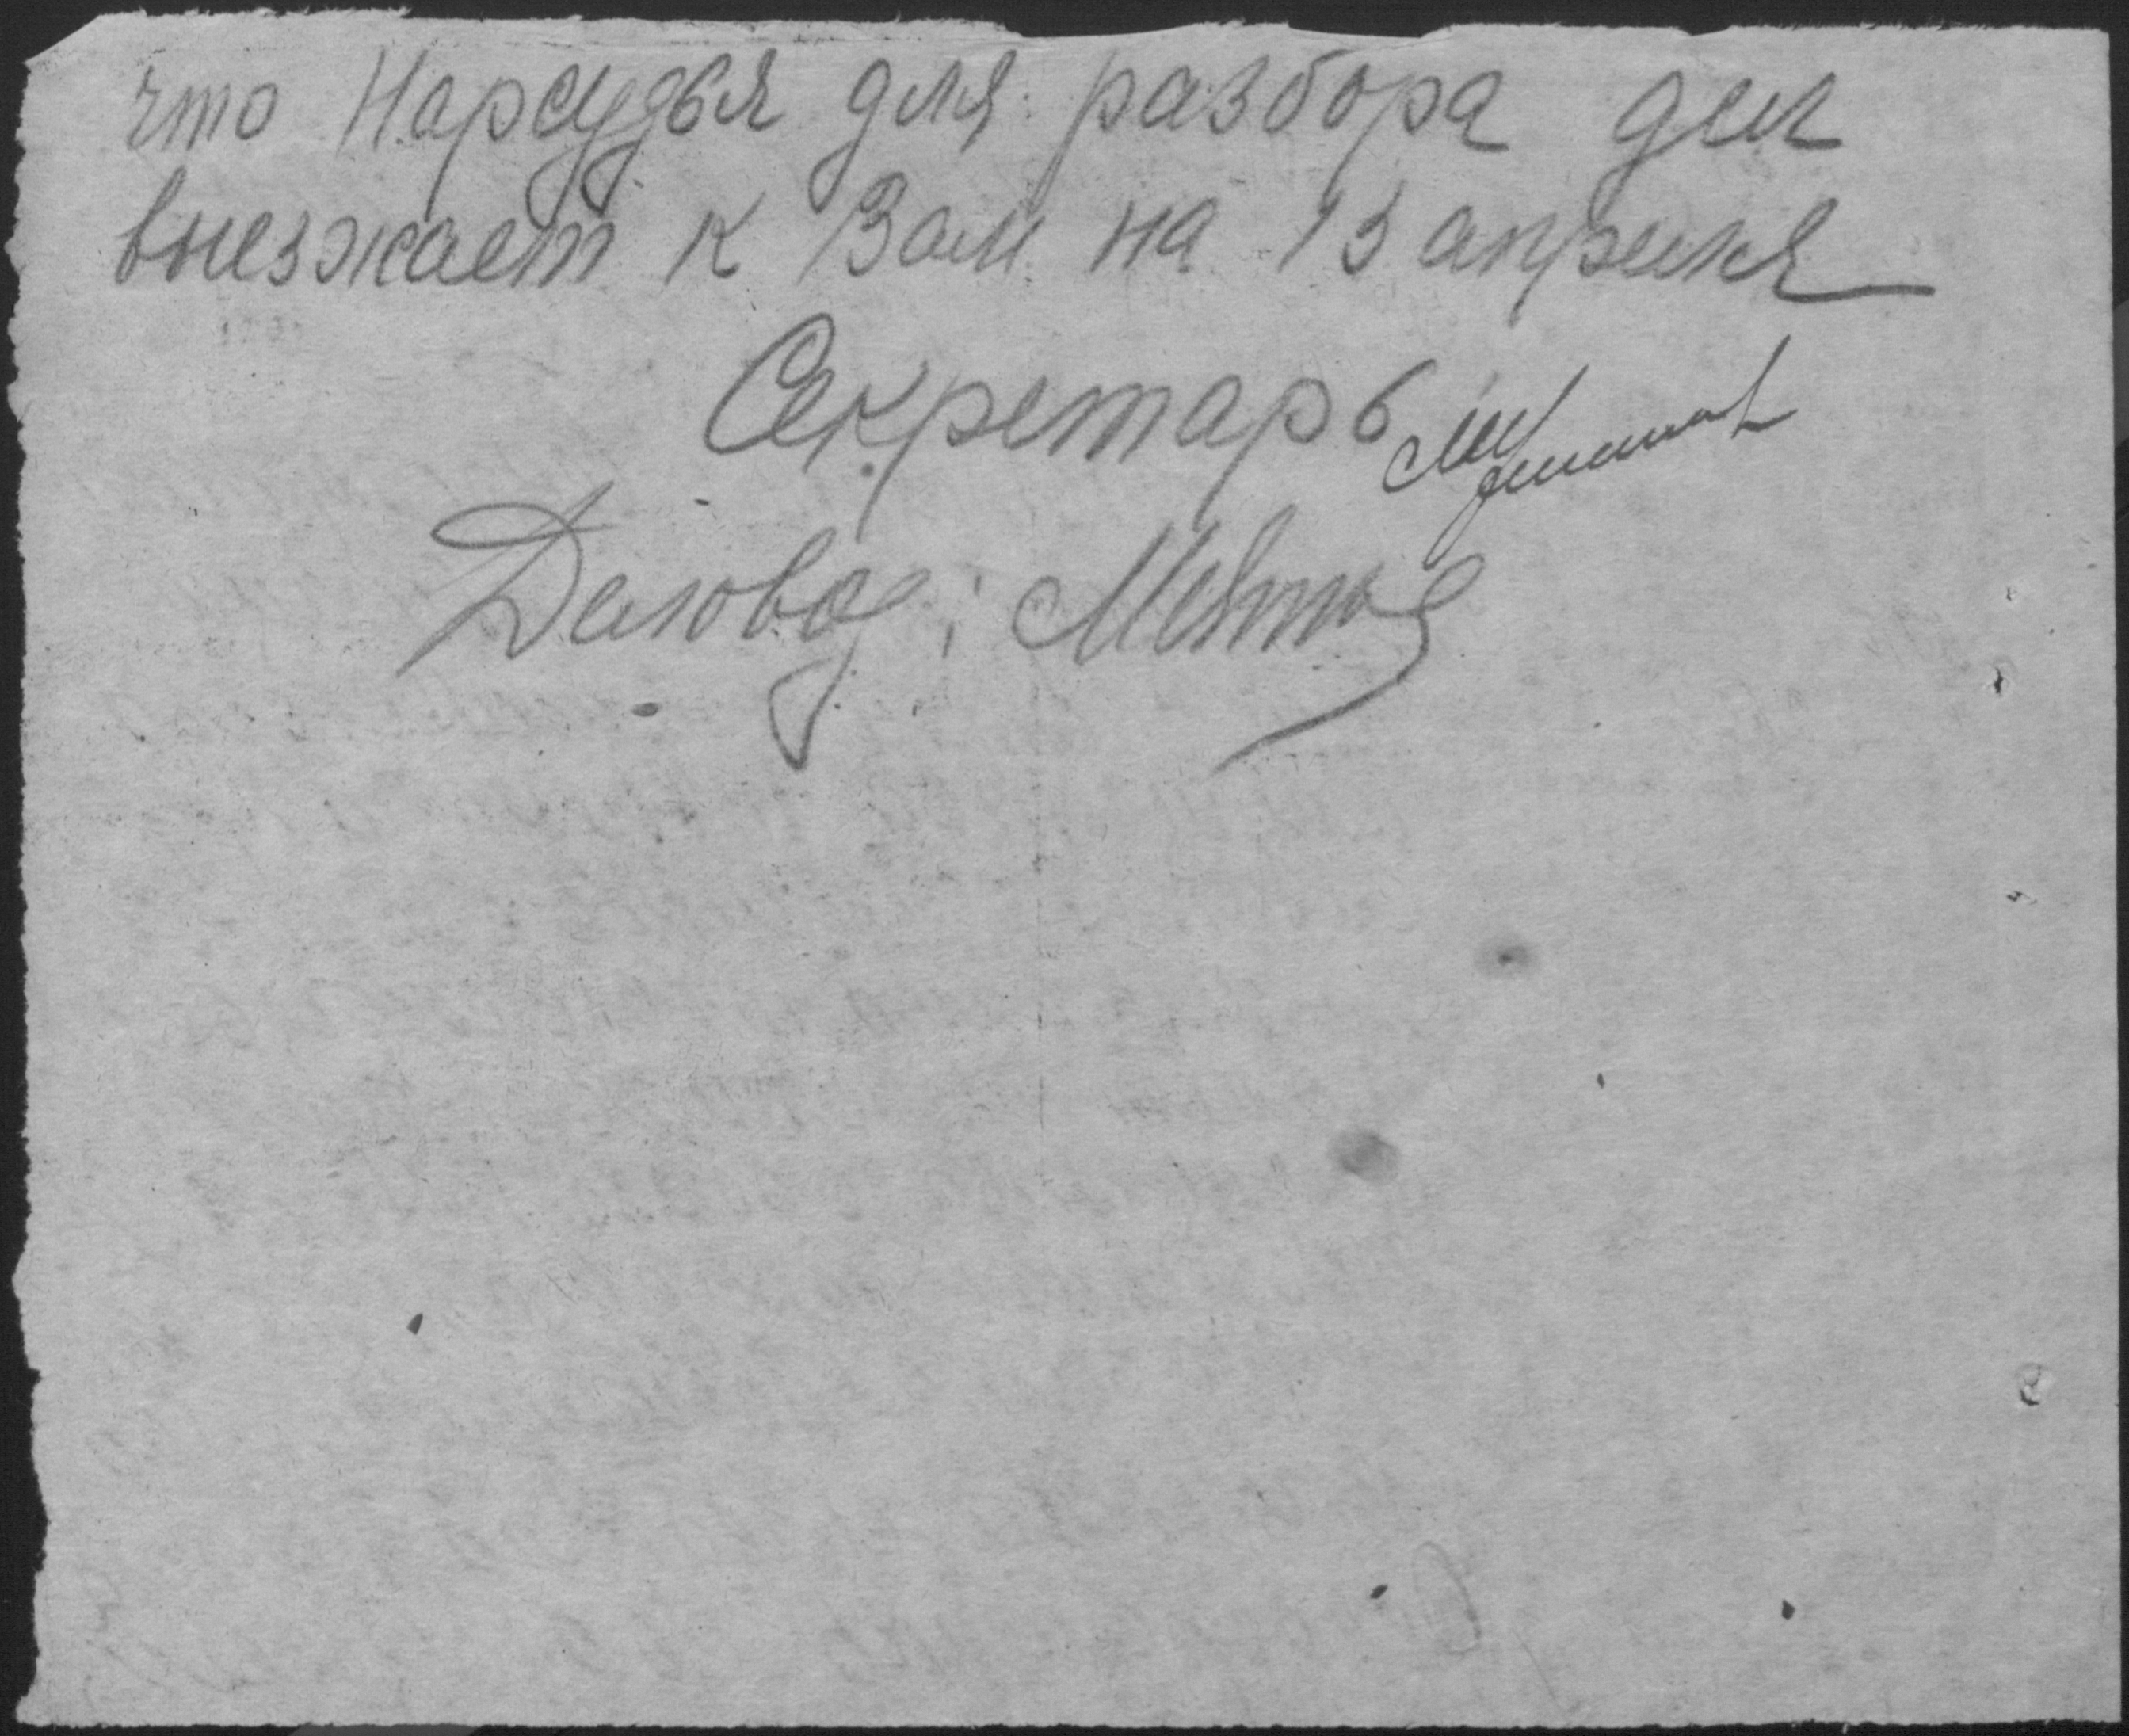 что Нарсудья для разбора дел
выезжает к Вам на 13 апреля
Секретарь
Деловод: